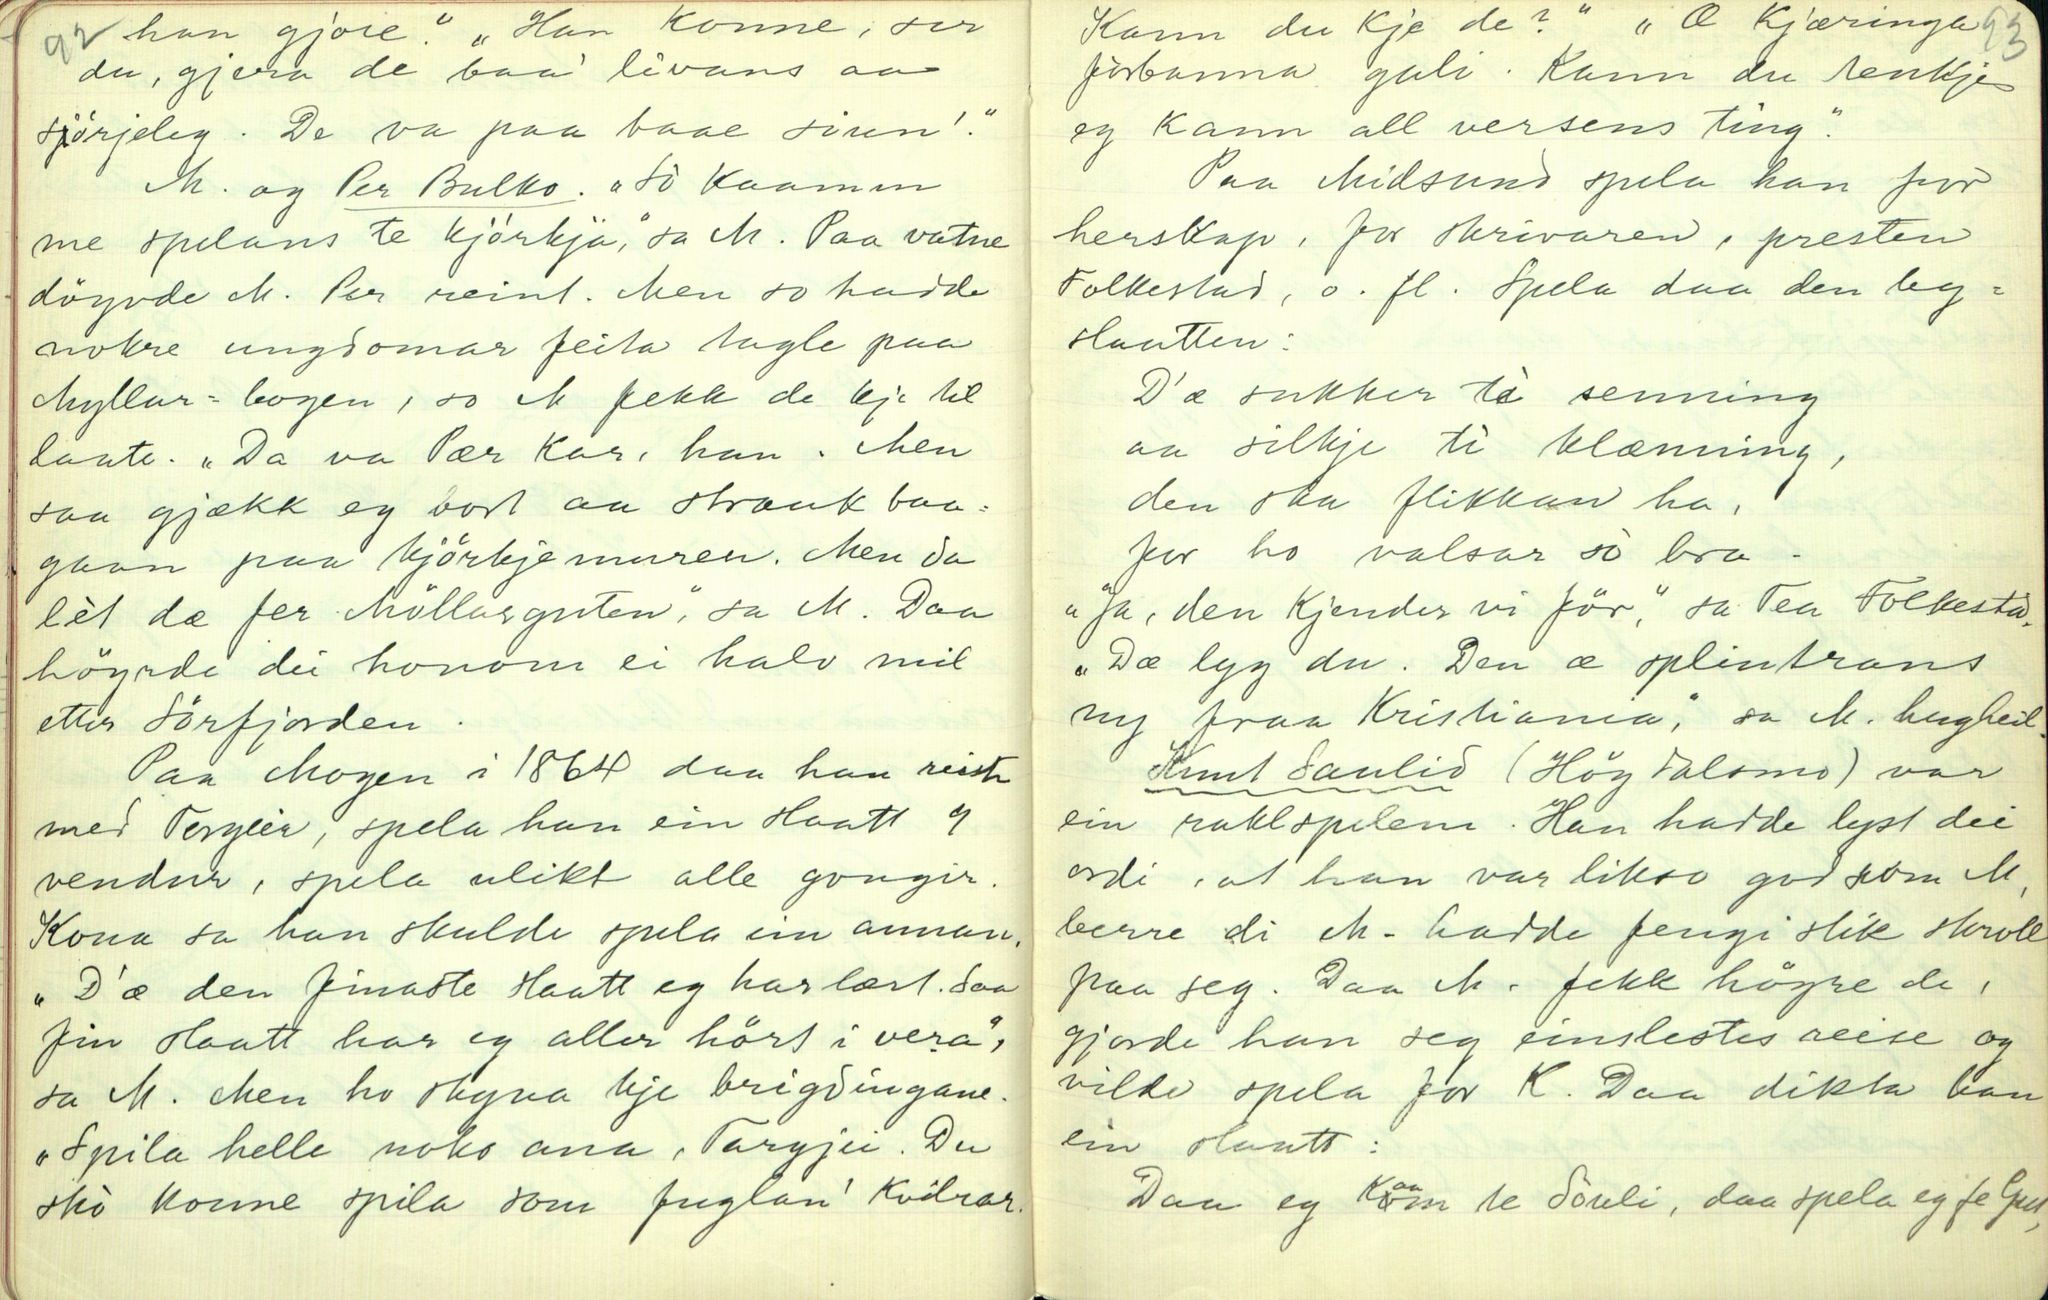 92
han gjore." „Han konne, ser
du, gjera de baa' livans aa
sjörjeleg. De va paa baae siun'."
M. og Per Bulko. „Sò kaamm
me spelans te kjörkjä," sa M. Paa vatne
döyvde M. Per reint. Men so hadde
nokre ungdomar feita tagle paa
Myllar-bogen, so M fekk de kje til
laate. „Da va Pær kar, han. Men
saa gjækk eg bort aa strauk baa-
gaan paa kjörkjemuren. Men da
lèt dæ fer Möllarguten," sa M. Daa
höyrde dei honom ei halv mil
etter Sörfjorden.
Paa Mogen i 1864 daa han reiste
med Torgeir, spela han ein slaatt 9
vendur, spela ulikt alle gongir.
Kona sa han skulde spela ein annan.
„D'æ den finaste slaatt eg har lært. Saa
fin slaatt har eg aller hört i vera",
sa M. Men ho skyna kje brigdingane.
„Spila helle noko ana, Targjei. Du
skò konne spila som fuglan' kvitrar.
93
Kann du kje de?" „Æ kjæringa
forbanna gali. Kann du tenkje
eg kann all versens ting".
Paa Midsund spela han for
herskap, for skrivaren, presten
Folkestad, o. fl. Spela daa den beg-
slaatten:
D'æ sukker tè senning
aa silkje ti klænning,
den ska flikkan ha,
for ho valsar sò bra.
„Ja, den kjender vi för," sa Tea Folkestad.
„Dæ lyg du. Den æ splintrans
ny fraa Kristiania," sa M. hugheil.
Knut Saulid (Höydalsmo) var
ein raklspelem. Han hadde lyst dei
ordi, at han var likso god som M,
berre di M. hadde fengi slik skroll
paa seg. Daa M. fekk höyre de,
gjorde han seg einslestes reise og
vilde spela for K. Daa dikta han
ein slaatt:
Daa eg kaam te Söuli, daa spela eg fe Gut,